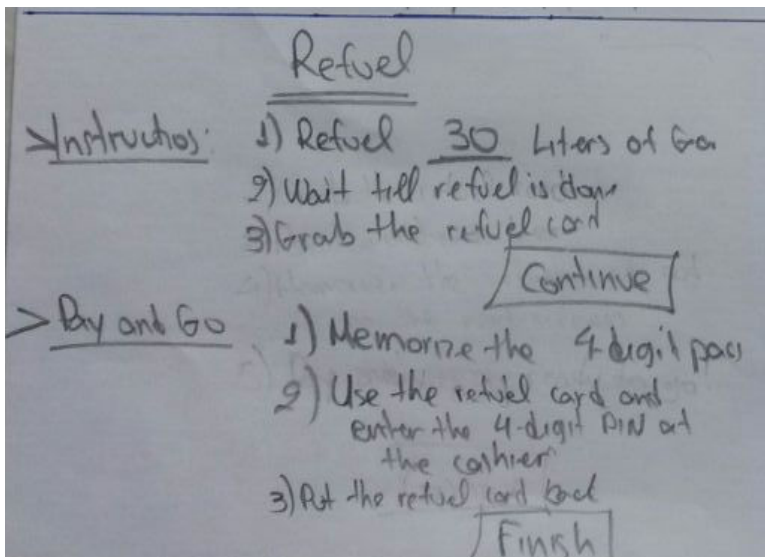 Refuel
> Instructios: 1) Refuel 30 Liters of Ga
2) Wait till refuel is done
3) Grab the refuel card
Continue
> Pay and Go 1) Memorize the 4-digit pass
2) Use the refuel card and
enter the 4-digit PIN at
the cashier
3) Put the refuel card back
Finish